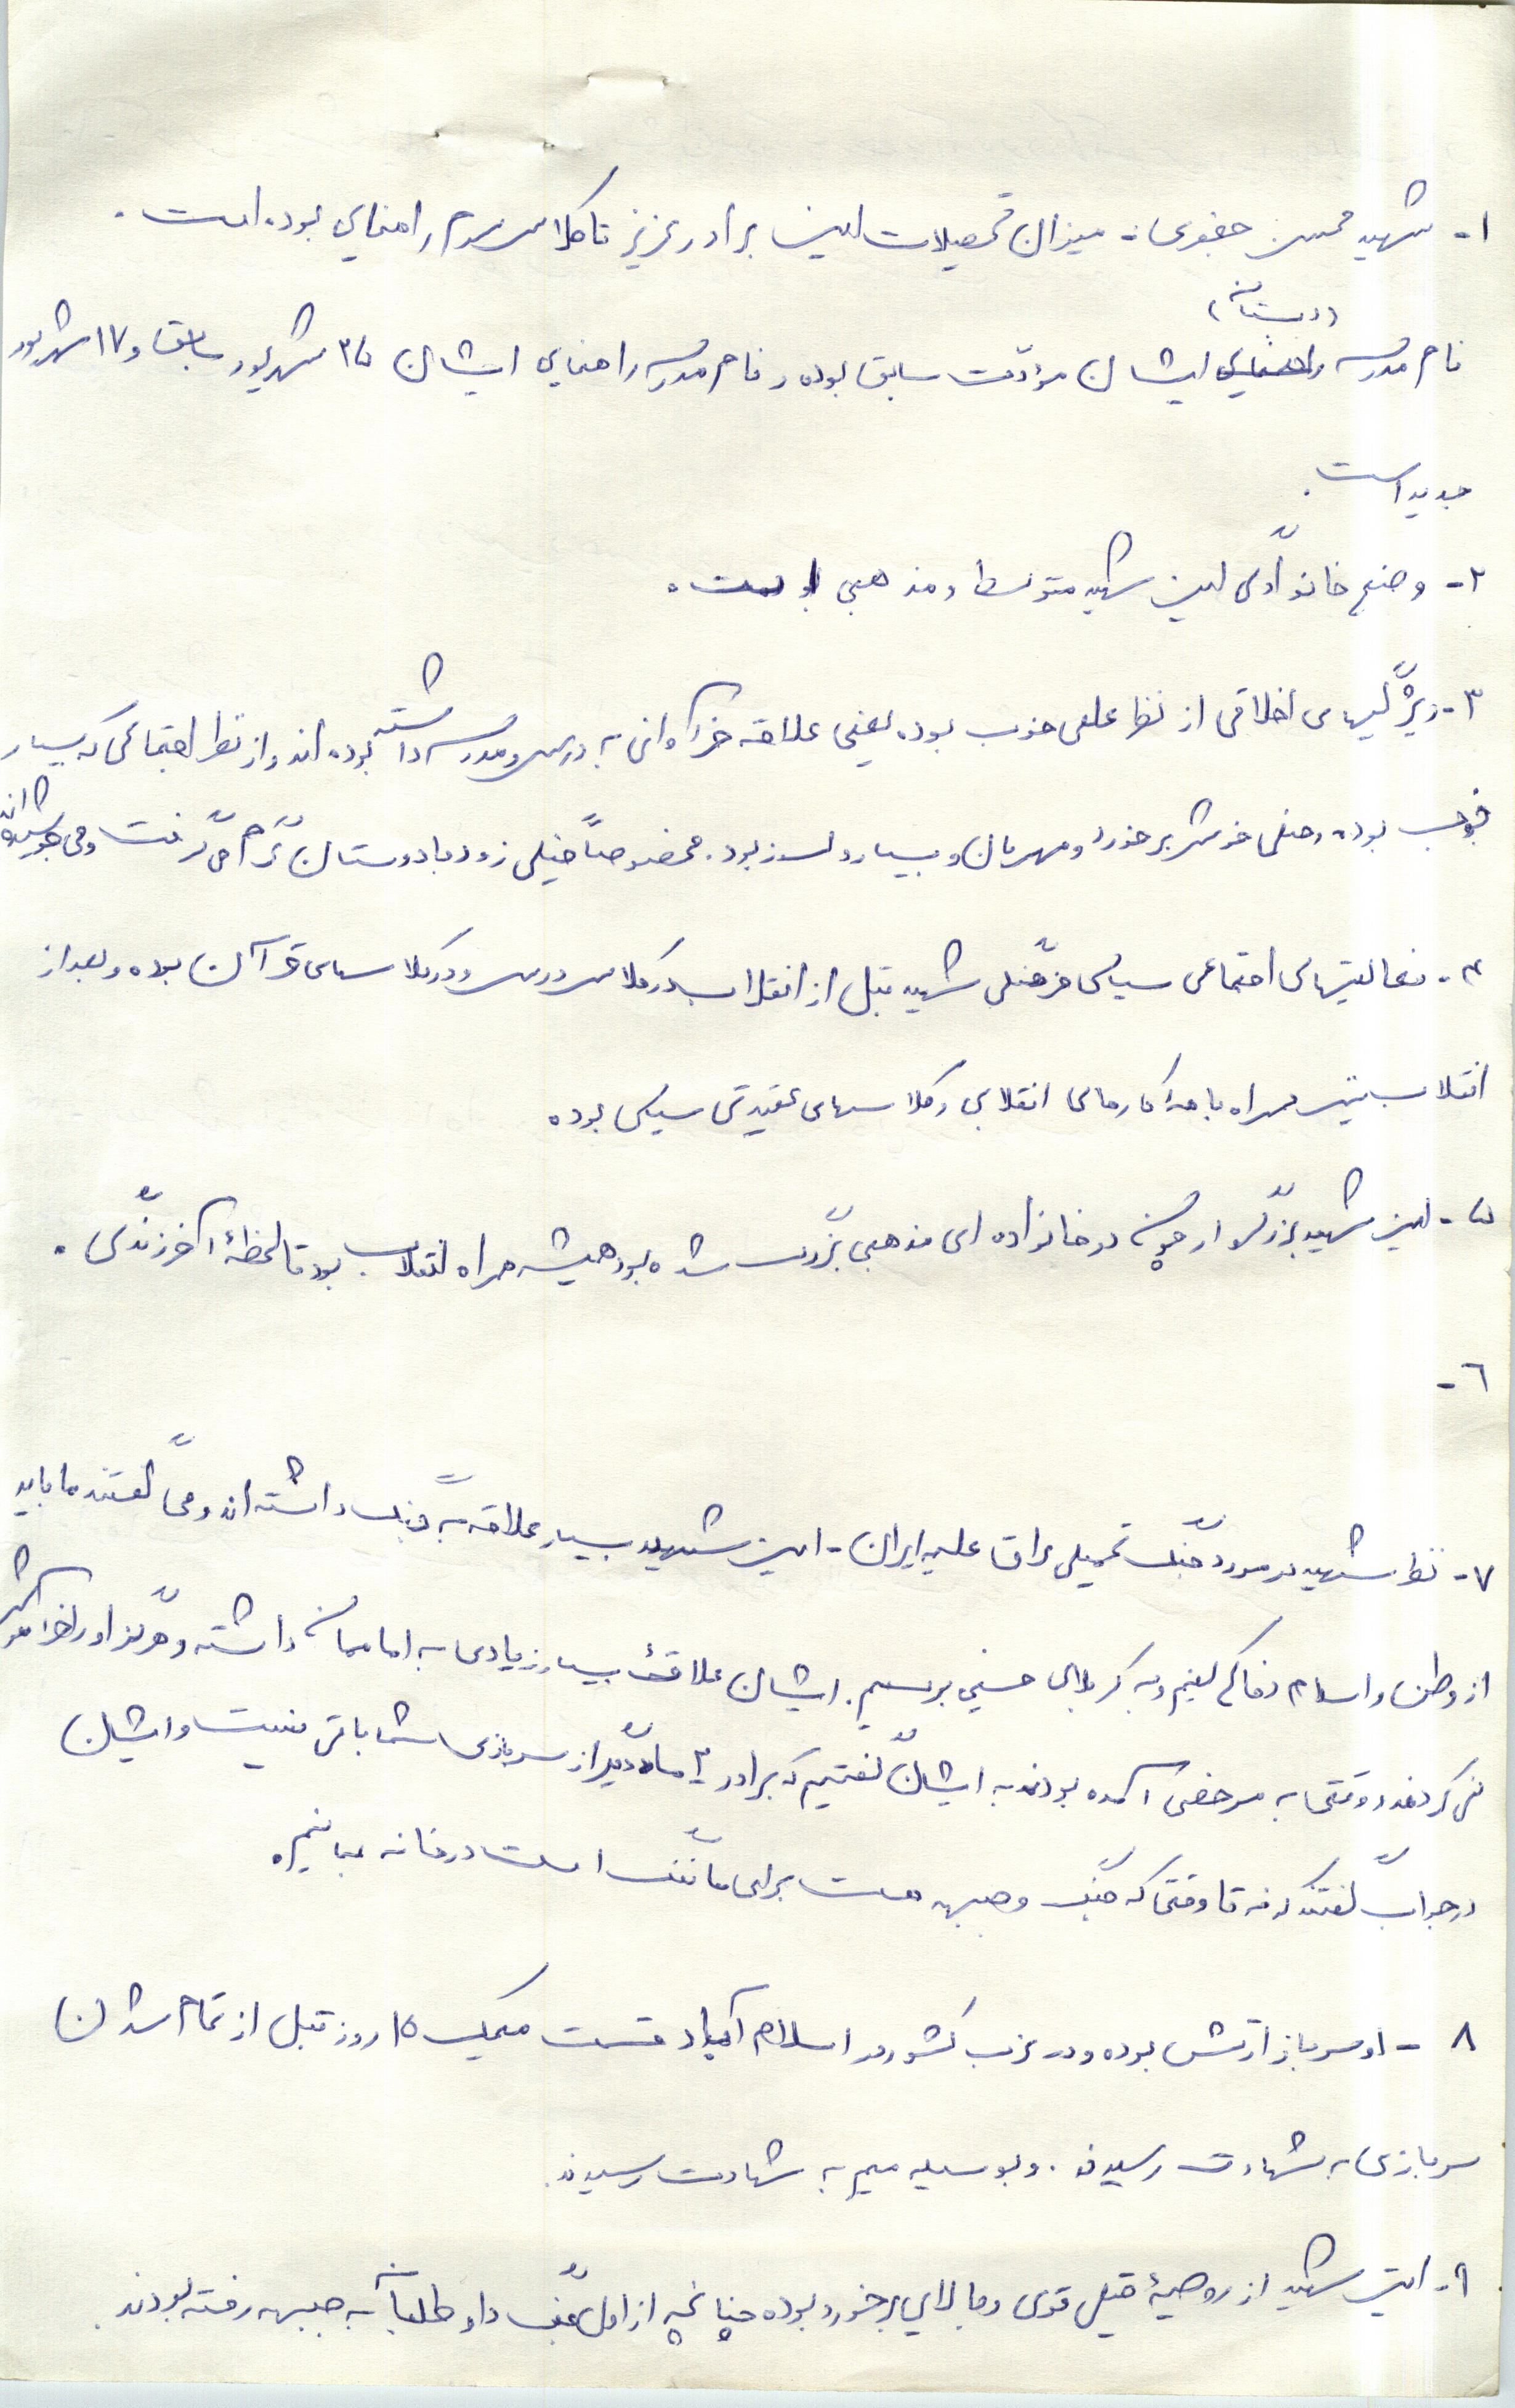 ۱- شهید محسن جعفری :- میزان تحصیلات این برادر عزیز تا کلاس سوم راهنمایی بوده است .
(دبستان)
نام مدرسه راهنمایی ایشان مودّت سابق بوده و نام مدرسه راهنمایی ایشان ۲۵ شهریور سابق و ۱۷ شهریور
جدید است .
۲- وضع خانوادگی این شهید متوسط و مذهبی است .
۳- ویژگیهای اخلاقی از نظر علمی خوب بوده یعنی علاقه فراوانی به درس و مدرسه داشته بوده اند و از نظر اجتماعی که بسیار
خوب بوده و خیلی خوش برخورد و مهربان و بسیار دلسوز بود . مخصوصاً خیلی زود با دوستان گرم می گرفت و می جوشیده اند
۴- فعالیتهای اجتماعی سیاسی فرهنگی شهید قبل از انقلاب در کلاس درس و در کلاسهای قرآن بوده و بعد از
انقلاب نیز همراه با مذاکارهای انقلابی و کلاسهای عقیدتی سیاسی بوده
۵- این شهید بزرگوار چون در خانواده ای مذهبی بزرگ شده بود همیشه همراه انقلاب بود تا لحظهٔ آخر زندگی .
۶-
۷- نظر شهید در مورد جنگ تحمیلی عراق علیه ایران - این شهید بسیار علاقه به جنگ داشته اند و می گفتند ما باید
از وطن و اسلام دفاع کنیم و به کربلای حسینی برسیم . ایشان علاقهٔ بسیار زیادی به اماممان داشته و هرگز او را فراموش
نمی کردند و وقتی به مرخصی آمده بودند به ایشان گفتیم که برادر ۲ ماه دیگر از سربازی شما باقی نیست و ایشان
در جواب گفتند که نه تا وقتی که جنگ و جبهه هست برای ما ننگ است در خانه بمانیم .
۸ - او سرباز ارتش بوده و در غرب کشور در اسلام آباد قسمت میمک ۱۵ روز قبل از تمام شدن
سربازی به شهادت رسیدند . و بوسیله مین به شهادت رسیدند .
۹- این شهید از روحیهٔ خیلی قوی و بالایی برخورد بوده چنانچه از اول جنگ داوطلبانه به جبهه رفته بودند .